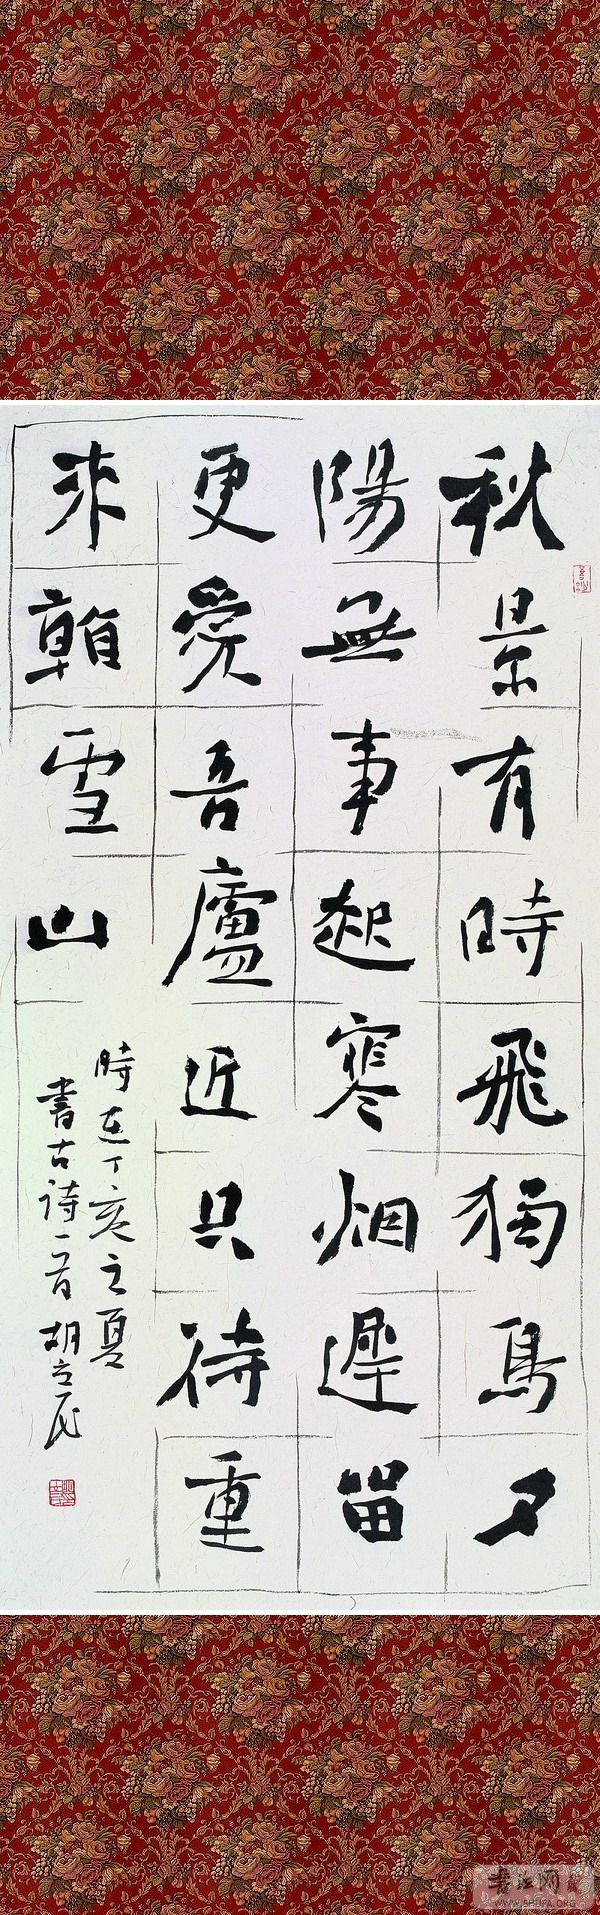 秋景有時飛獨鳥夕
陽無事起寒烟遲留
更愛吾廬近只待重
来雪山
時在丁亥之夏
書古诗一首 胡立民
WWW.SHUFA.ORG